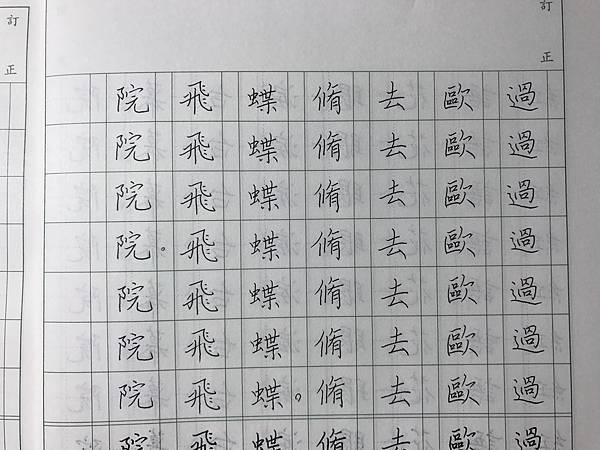 訂正
過過過過過過過過
歐歐歐歐歐歐歐歐
去去去去去去去去
脩脩脩脩脩脩脩脩
蝶蝶蝶蝶蝶蝶蝶蝶
飛飛飛飛飛飛飛飛
院院院院院院院院
訂正